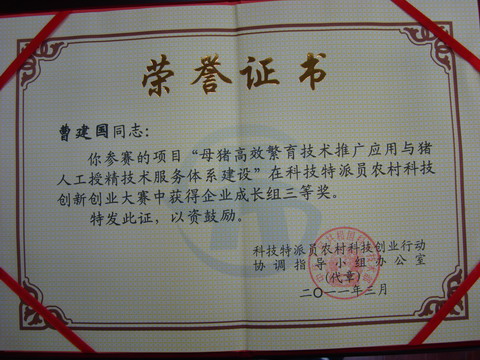 荣誉证书
曹建国同志：
你参赛的项目“母猪高效繁育技术推广应用与猪
人工授精技术服务体系建设”在科技特派员农村科技
创新创业大赛中获得企业成长组三等奖。
特发此证，以资鼓励。
科技特派员农村科技创业行动
协调指导小组办公室
(代章)
二〇一一年三月